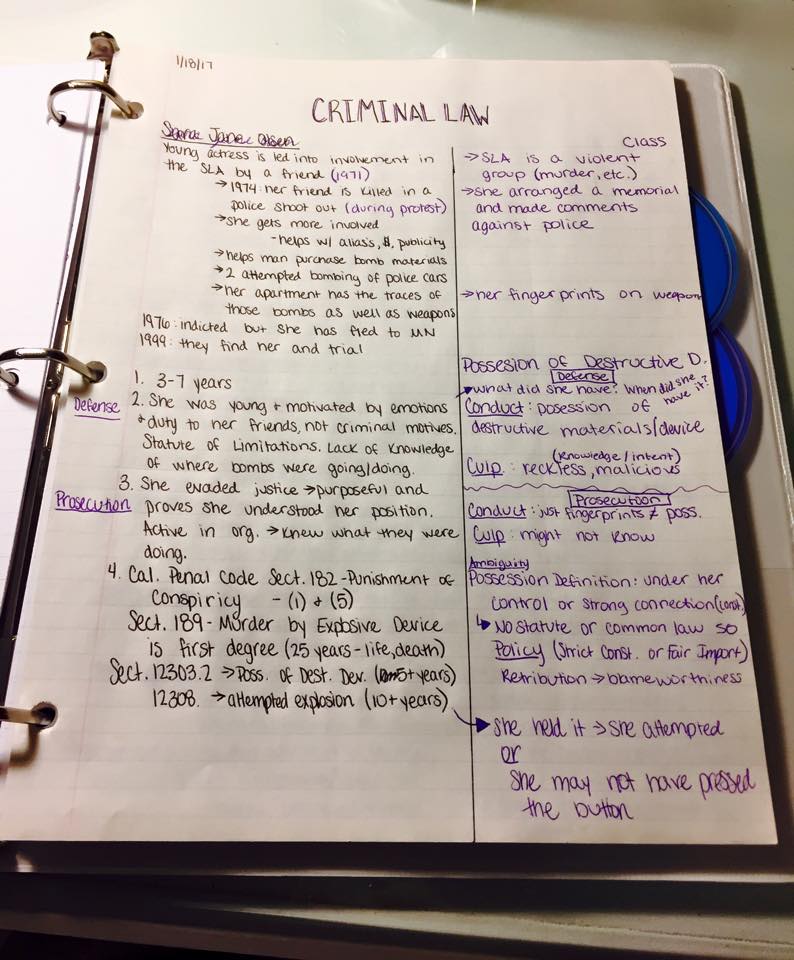 1/18/17
CRIMINAL LAW
Sara Jane Olsen
Young actress is led into involvement in
the SLA by a friend (1971)
→1974: her friend is killed in a
police shoot out (during protest)
→she gets more involved
-helps w/ alias's, $, publicity
→helps man purchase bomb materials
→2 attempted bombing of police cars
→her apartment has the traces of
those bombs as well as weapons
1976: indicted but she has fled to MN
1999: they find her and trial
1. 3-7 years
Defense
2. She was young + motivated by emotions
+ duty to her friends, not criminal motives.
Statute of Limitations. Lack of Knowledge
of where bombs were going/doing.
3. She evaded justice →purposeful and
Prosecution
proves she understood her position.
Active in org. →knew what they were
doing.
4. Cal. Penal Code Sect. 182-Punishment of
Conspiricy - (1) + (5)
Sect. 189- Murder by Explosive Device
is first degree (25 years-life, death)
Sect. 12303.2 →Poss. of Dest. Dev. (5+years)
12308. →attempted explosion (10+years)
Class
→SLA is a violent
group (murder, etc.)
→she arranged a memorial
and made comments
against police
→her fingerprints on weapon
Possesion of Destructive D.
Defense
what did she have? When did she
have it?
Conduct: posession of
destructive materials/device
(knowledge/intent)
Culp: reckless, malicious
Prosecution
Conduct: just fingerprints ≠ poss.
Culp: might not know
Ambiguity
Possession Definition: under her
control or strong connection (const.)
↳ No statute or common law so
Policy (Strict Const. or Fair Import)
Retribution →blameworthiness
→ she held it →she attempted
or
she may not have pressed
the button